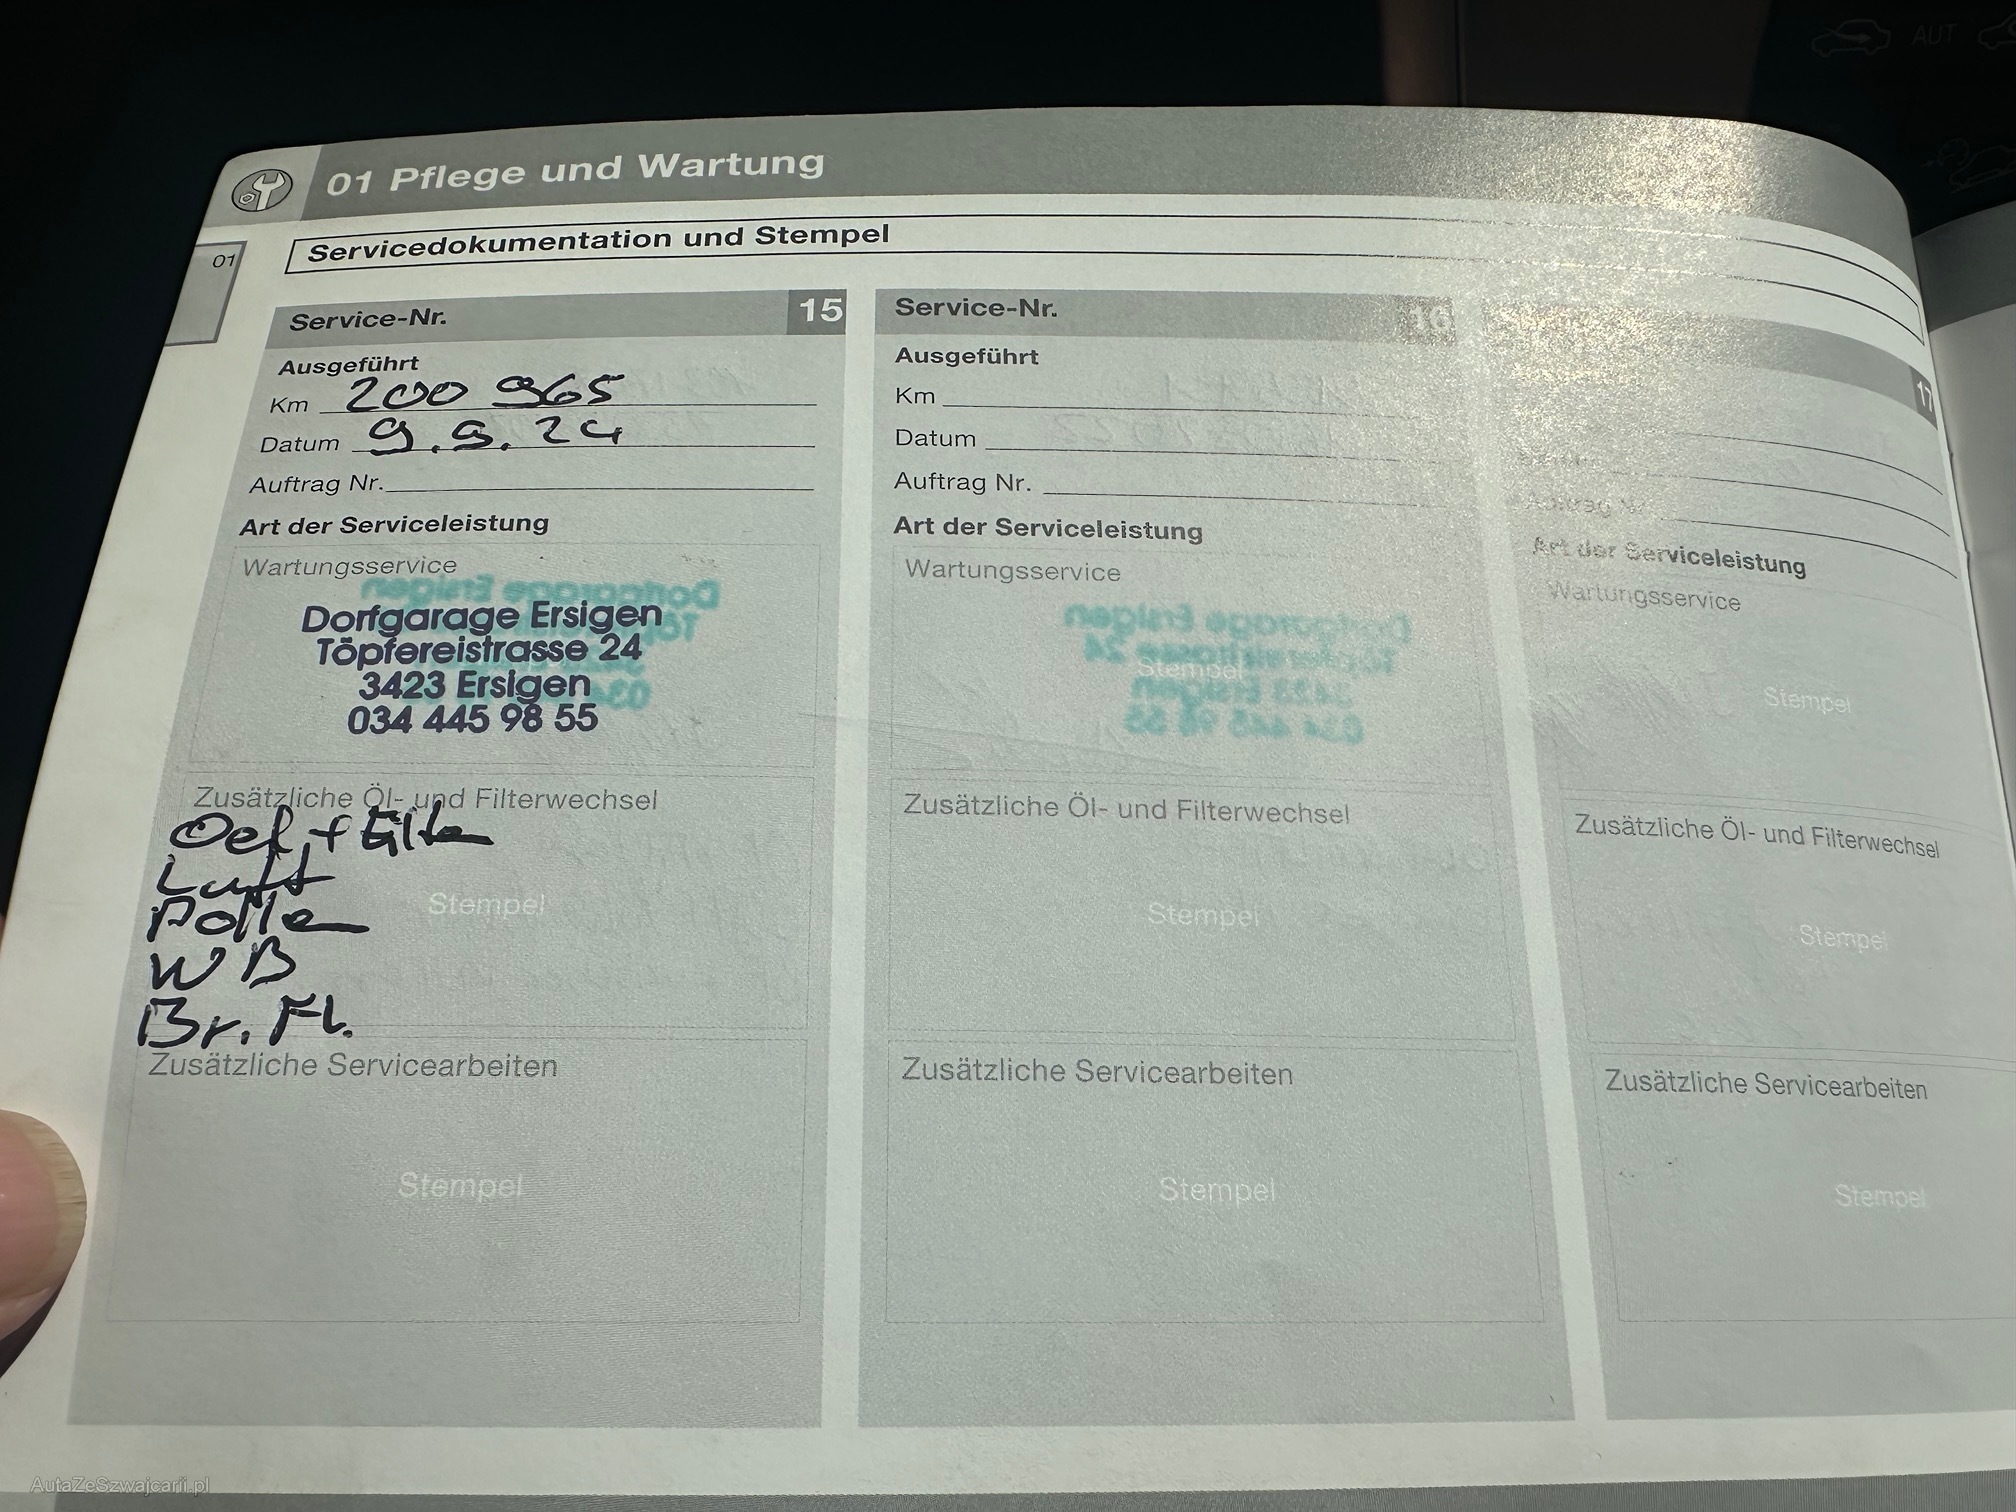 AUT
01 Pflege und Wartung
Servicedokumentation und Stempel
01
Service-Nr. 15
Ausgeführt
Km 200 965
Datum 9.9.24
Auftrag Nr.
Art der Serviceleistung
Wartungsservice
Dorfgarage Ersigen
Töpfereistrasse 24
3423 Ersigen
034 445 98 55
Zusätzliche Öl- und Filterwechsel
Oel + Filter
Luft
Pollen
WB
Br. Fl.
Stempel
Zusätzliche Servicearbeiten
Stempel
Service-Nr. 16
Ausgeführt
Km
Datum
Auftrag Nr.
Art der Serviceleistung
Wartungsservice
Stempel
Zusätzliche Öl- und Filterwechsel
Stempel
Zusätzliche Servicearbeiten
Stempel
17
Auftrag Nr.
Art der Serviceleistung
Wartungsservice
Stempel
Zusätzliche Öl- und Filterwechsel
Stempel
Zusätzliche Servicearbeiten
Stempel
AutaZeSzwajcarii.pl